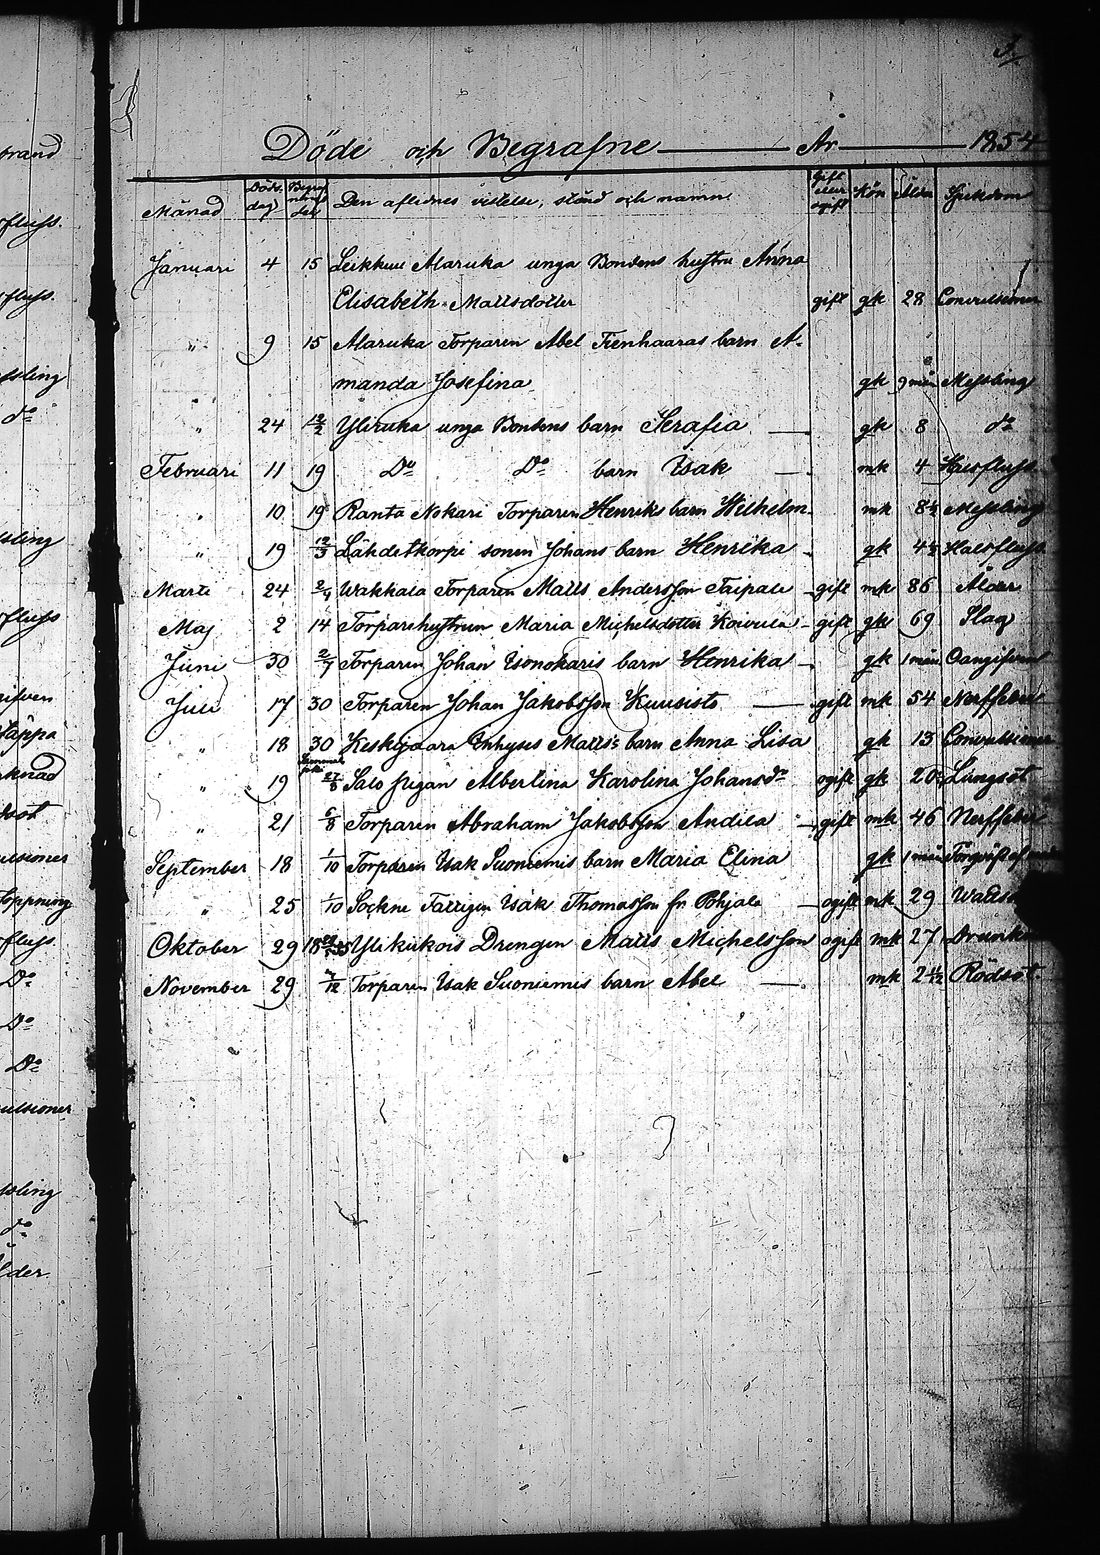 Döde och Begrafne År 1854
Månad Döds dag Begrafnings dag Den aflidnes vistelse, stånd och namn Gift eller ogift Kön Ålder Sjukdom
Januari 4 15 Leikkuu Alaruka unga Bondens hustru Anna
Elisabeth Mattsdotter gift qk 28 Convulsioner
" 9 15 Alaruka Torparen Abel Tienhaaras barn A-
manda Josefina qk 9 mån Messling
" 24 12/2 Yliruka unga Bondens barn Serafia qk 8 do
Februari 11 19 Do Do barn Isak mk 4 Halsfluss
" 10 19 Ranta Nokari Torparen Henriks barn Wilhelm mk 8½ Messling
" 19 12/3 Lähdetkorpi sonen Johans barn Henrika qk 4½ Halsfluss
Marti 24 2/4 Wakkala Torparen Matts Andersson Taipale gift mk 86 Ålder
Maj 2 14 Torparehustrun Maria Michelsdotter Koivula gift qk 69 Slag
Juni 30 2/7 Torparen Johan Isonokaris barn Henrika qk 1 mån Oangifven
Juli 17 30 Torparen Johan Jakobsson Kuusisto gift mk 54 Nerffeber
" 18 30 Keskijaara Inhyses Matts's barn Anna Lisa qk 13 Convulsioner
" 19 27/8 Salo pigan Albertina Karolina Johansdr ogift qk 20 Lungsot
" 21 6/8 Torparen Abraham Jakobsson Andila gift mk 46 Nerffeber
September 18 1/10 Torparen Isak Suoniemis barn Maria Elina qk 1 mån
" 25 1/10 Sockne Fattigen Isak Thomasson fr Pohjala ogift mk 29
Oktober 29 Ylikirkois Drengen Matts Michelsson ogift mk 27
November 29 7/12 Torparen Isak Suoniemis barn Abel mk 2½ Rödsot